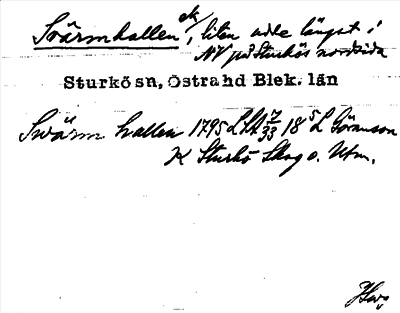 Svärmhallen ek/, liten udde längst i
NV på Sturkös nordsida
Sturkö sn, Östra hd Blek. län
Swärm hallen 1795 LSA 7/33 18 5 L Göransson
K Sturkö Skog o. Utm.